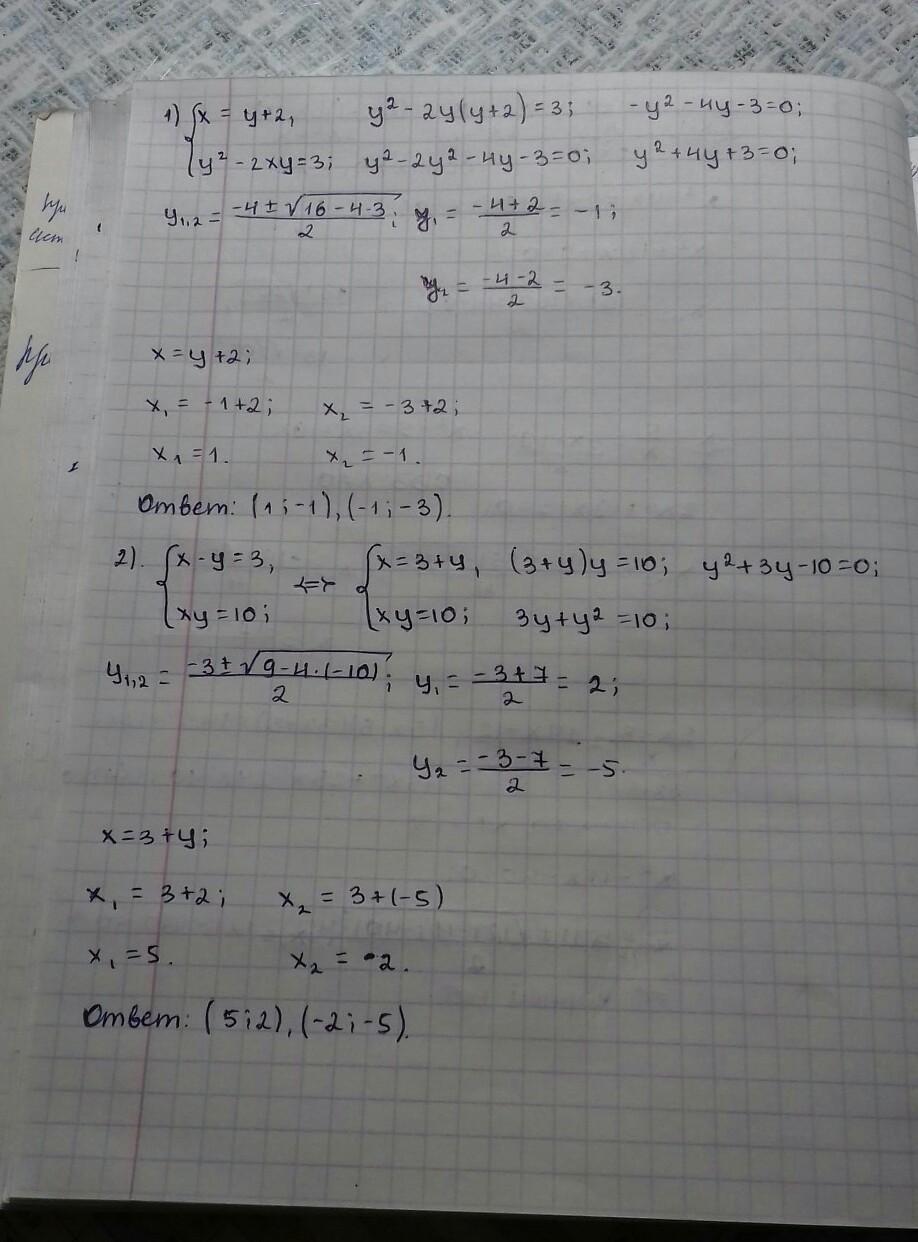 1) { x = y+2, y² - 2y(y+2) = 3; -y² - 4y - 3 = 0;
{ y² - 2xy = 3; y² - 2y² - 4y - 3 = 0; y² + 4y + 3 = 0;
y₁,₂ = (-4 ± √(16 - 4·3))/2; y₁ = (-4+2)/2 = -1;
y₂ = (-4-2)/2 = -3.
x = y+2;
x₁ = -1+2; x₂ = -3+2;
x₁ = 1. x₂ = -1.
Ответ: (1; -1), (-1; -3).
2). { x - y = 3, <=> { x = 3+y, (3+y)y = 10; y² + 3y - 10 = 0;
{ xy = 10; { xy = 10; 3y + y² = 10;
y₁,₂ = (-3 ± √(9 - 4·(-10)))/2; y₁ = (-3+7)/2 = 2;
y₂ = (-3-7)/2 = -5.
x = 3+y;
x₁ = 3+2; x₂ = 3+(-5)
x₁ = 5. x₂ = -2.
Ответ: (5; 2), (-2; -5).